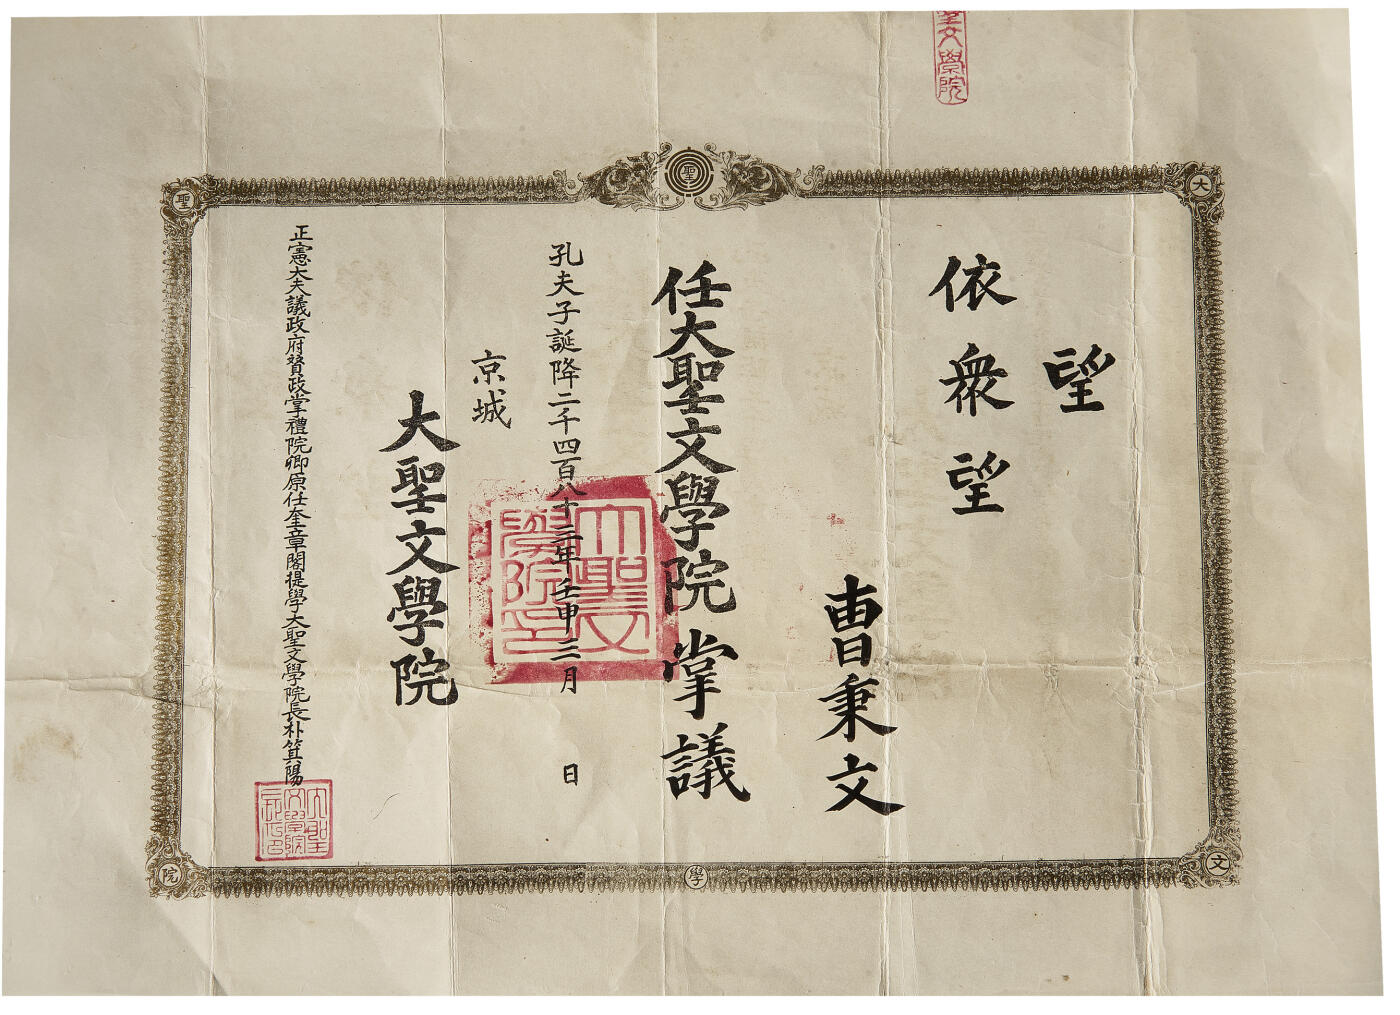 聖文學院
望
依衆望
曹秉文
任大聖文學院掌議
孔夫子誕降二千四百八十三年壬申三月 日
京城
大聖文學院
正憲大夫議政府贊政掌禮院卿原任奎章閣提學大聖文學院長朴箕陽
大聖文學院印
大聖文學院長之印
聖
大
聖
文
學
院